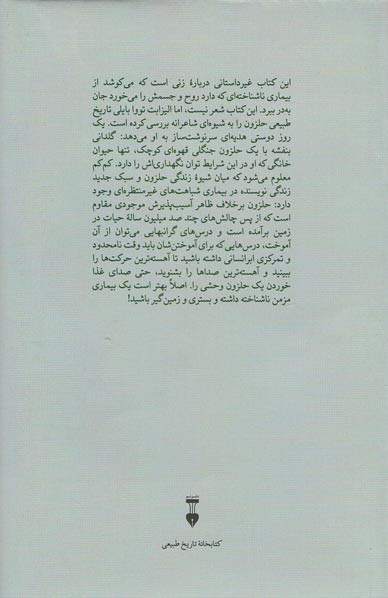 این کتاب غیرداستانی دربارهٔ زنی است که می‌کوشد از
بیماری ناشناخته‌ای که دارد روح و جسمش را می‌خورد جان
به‌در ببرد. این کتاب شعر نیست، اما الیزابت تووا بایلی تاریخ
طبیعی حلزون را به شیوه‌ای شاعرانه بررسی کرده است. یک
روز دوستی هدیه‌ای سرنوشت‌ساز به او می‌دهد: گلدانی
بنفشه با یک حلزون جنگلی قهوه‌ای کوچک، تنها حیوان
خانگی‌ که او در این شرایط توان نگهداری‌اش را دارد. کم‌کم
معلوم می‌شود که میان شیوهٔ زندگی حلزون و سبک جدید
زندگی نویسنده در بیماری شباهت‌های غیرمنتظره‌ای وجود
دارد: حلزون برخلاف ظاهر آسیب‌پذیرش موجودی مقاوم
است که از پس چالش‌های چند صد میلیون سالهٔ حیات در
زمین برآمده است و درس‌های گرانبهایی می‌توان از آن
آموخت، درس‌هایی که برای آموختن‌شان باید وقت نامحدود
و تمرکزی ابرانسانی داشته باشید تا آهسته‌ترین حرکت‌ها را
ببینید و آهسته‌ترین صداها را بشنوید، حتی صدای غذا
خوردن یک حلزون وحشی را. اصلاً بهتر است یک بیماری
مزمن ناشناخته داشته و بستری و زمین‌گیر باشید!
نشرنو
کتابخانهٔ تاریخ طبیعی